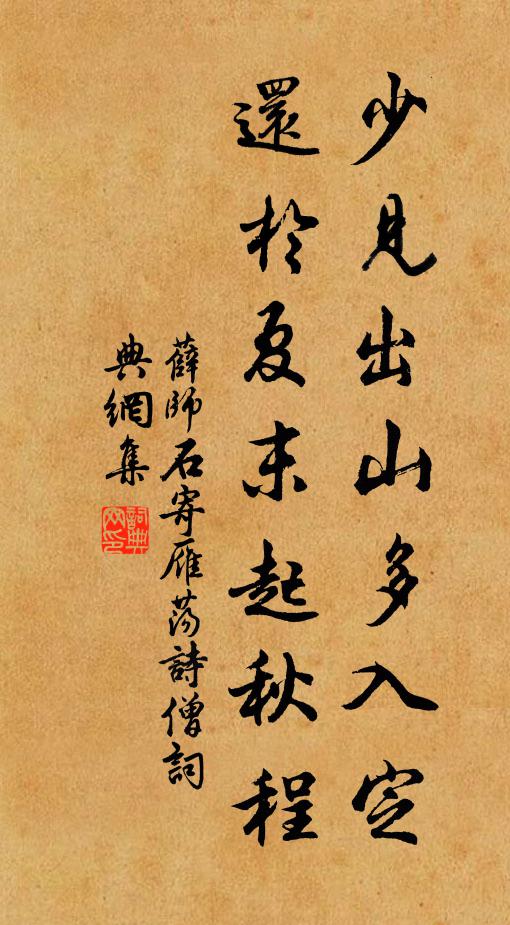 少見出山多入定
還於夏末起秋程
薛師石寄雁蕩詩僧詞
典網集